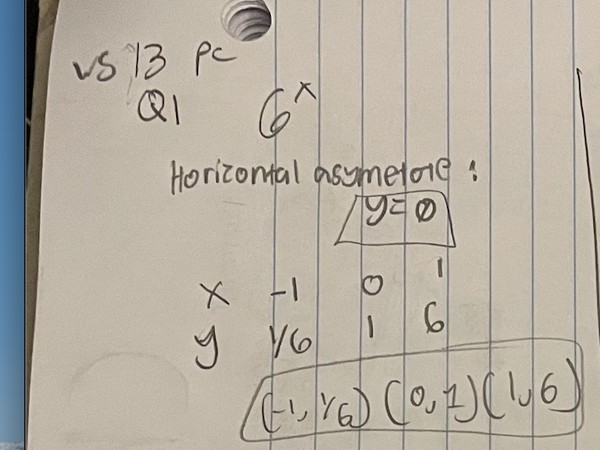 WS 13 PC
Q1 6^x
Horizontal asymetote :
y= 0
x -1 0 1
y 1/6 1 6
(-1, 1/6) (0, 1) (1, 6)